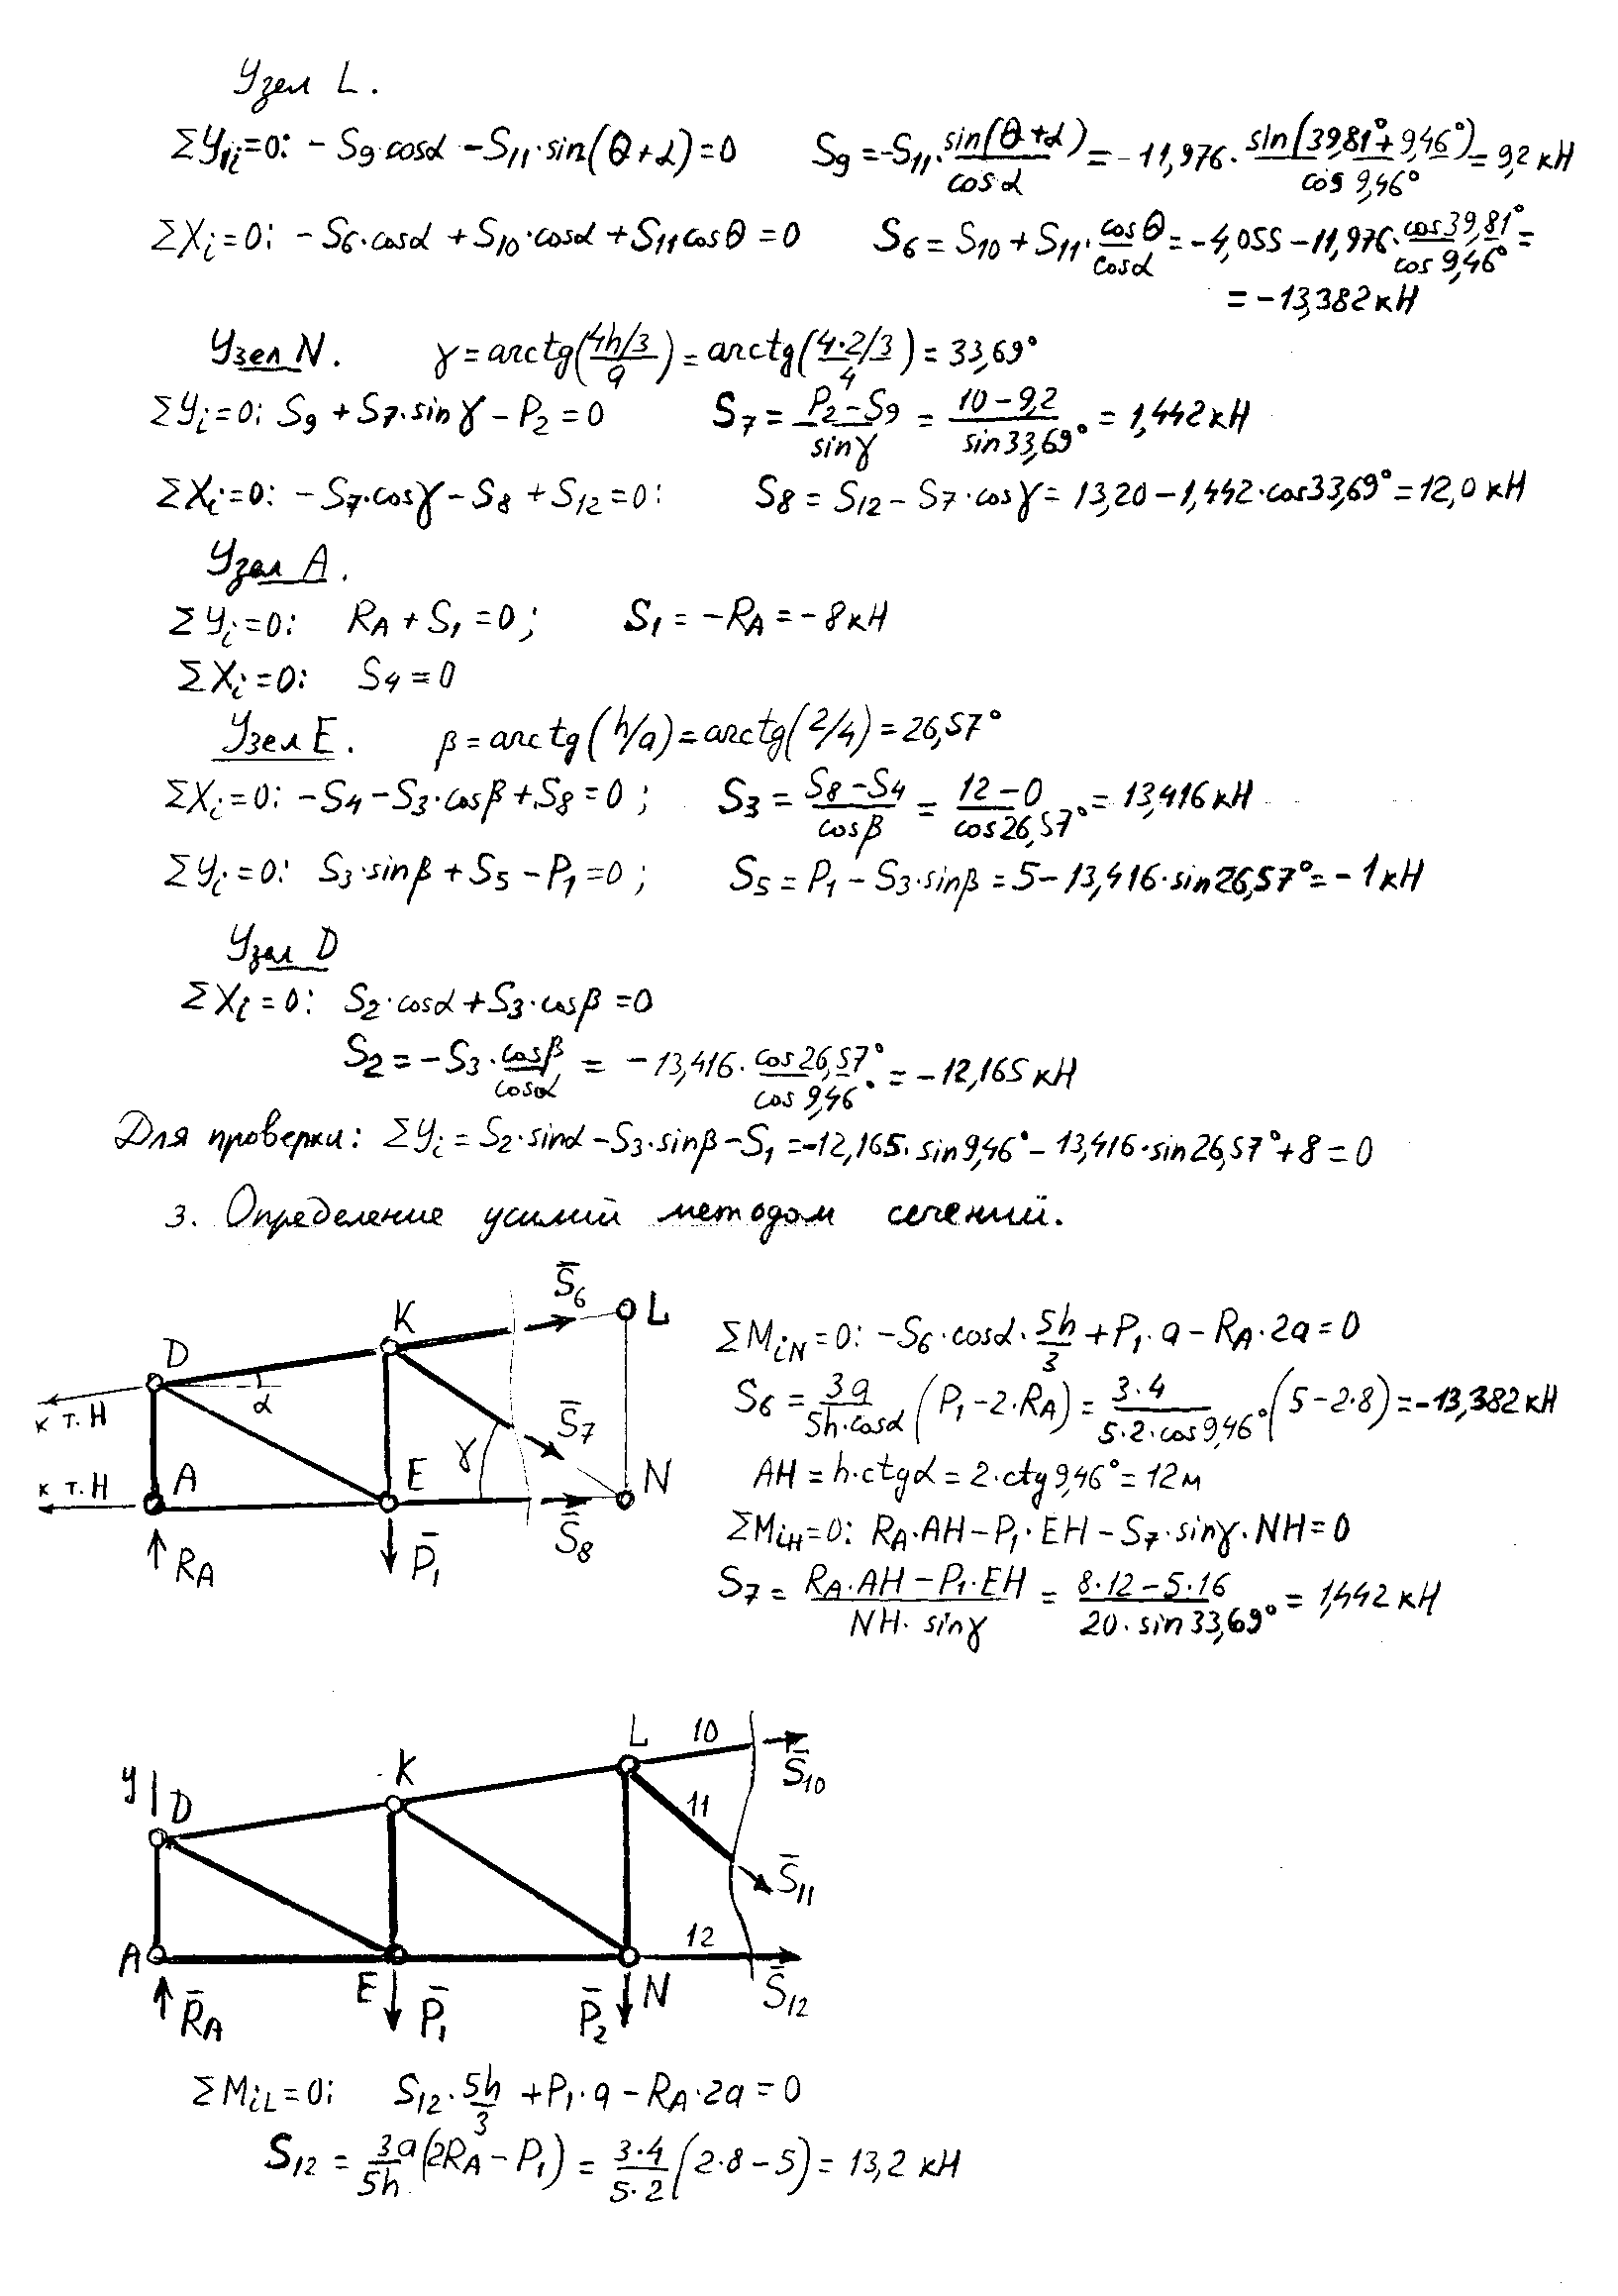 Узел L.
ΣY₁ᵢ=0: -S₉·cosα -S₁₁·sin(θ+α)=0 S₉=-S₁₁·sin(θ+α)/cosα = -11,976·sin(39,81°+9,46°)/cos 9,46° = 9,2 кН
ΣXᵢ=0: -S₆·cosα +S₁₀·cosα+S₁₁cosθ=0 S₆=S₁₀+S₁₁·cosθ/cosα=-4,055-11,976·cos39,81°/cos 9,46°=
=-13,382кН
Узел N. γ=arctg((4h/3)/a)=arctg((4·2/3)/4)=33,69°
ΣYᵢ=0: S₉+S₇·sinγ-P₂=0 S₇=(P₂-S₉)/sinγ=(10-9,2)/sin33,69°=1,442кН
ΣXᵢ=0: -S₇·cosγ-S₈+S₁₂=0: S₈=S₁₂-S₇·cosγ=13,20-1,442·cos33,69°=12,0кН
Узел A.
ΣYᵢ=0: R_A+S₁=0; S₁=-R_A=-8кН
ΣXᵢ=0: S₄=0
Узел E. β=arctg(h/a)=arctg(2/4)=26,57°
ΣXᵢ=0: -S₄-S₃·cosβ+S₈=0; S₃=(S₈-S₄)/cosβ=(12-0)/cos26,57°=13,416кН
ΣYᵢ=0: S₃·sinβ+S₅-P₁=0; S₅=P₁-S₃·sinβ=5-13,416·sin26,57°=-1кН
Узел D
ΣXᵢ=0: S₂·cosα+S₃·cosβ=0
S₂=-S₃·cosβ/cosα = -13,416·cos26,57°/cos 9,46°=-12,165кН
Для проверки: ΣYᵢ=S₂·sinα-S₃·sinβ-S₁=-12,165·sin9,46°-13,416·sin26,57°+8=0
3. Определение усилий методом сечений.
S̄₆
K
L
D
α
к т. H
S̄₇
γ
A
E
N
к т. H
S̄₈
R_A
P̄₁
ΣM_iN=0: -S₆·cosα·5h/3+P₁·a-R_A·2a=0
S₆=3a/(5h·cosα)(P₁-2·R_A)=3·4/(5·2·cos9,46°)(5-2·8)=-13,382кН
AH=h·ctgα=2·ctg9,46°=12м
ΣM_iH=0: R_A·AH-P₁·EH-S₇·sinγ·NH=0
S₇=(R_A·AH-P₁·EH)/(NH·sinγ)=(8·12-5·16)/(20·sin33,69°)=1,442кН
L
10
S̄₁₀
K
y
D
11
S̄₁₁
12
A
E
N
S̄₁₂
R̄_A
P̄₁
P̄₂
ΣM_iL=0: S₁₂·5h/3+P₁·a-R_A·2a=0
S₁₂=3a/5h(2R_A-P₁)=3·4/5·2(2·8-5)=13,2 кН